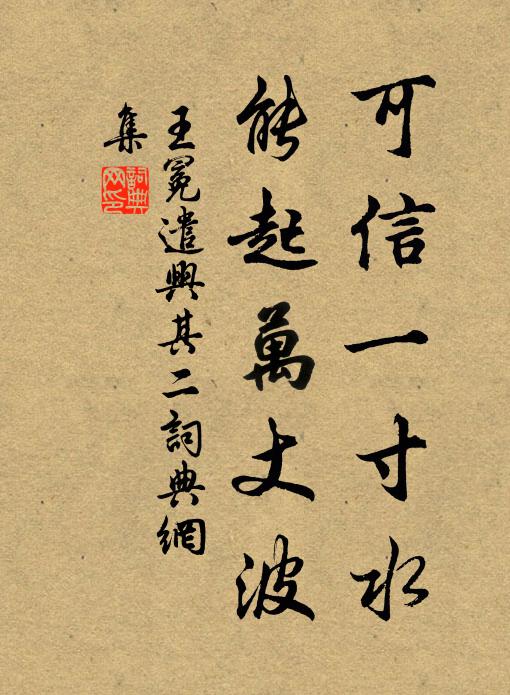 可信一寸水
能起萬丈波
王冕遣興其二詞典網
集
詞典網印